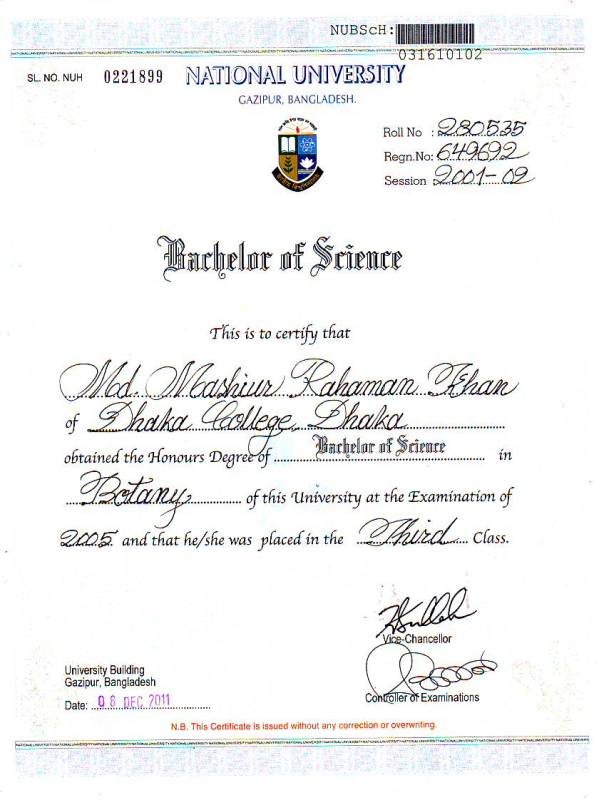 NUBScH:
031610102
SL. NO. NUH 0221899 NATIONAL UNIVERSITY
GAZIPUR, BANGLADESH.
Roll No : 280535
Regn.No: 649692
Session : 2001-02
Bachelor of Science
This is to certify that
Md. Mashiur Rahaman Khan
of Dhaka College, Dhaka
obtained the Honours Degree of Bachelor of Science in
Botany of this University at the Examination of
2005 and that he/she was placed in the Third Class.
Vice-Chancellor
University Building
Gazipur, Bangladesh
Controller of Examinations
Date: 08 DEC 2011
N.B. This Certificate is issued without any correction or overwriting.